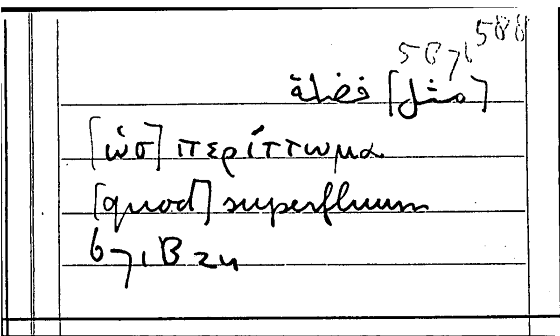 588
[مثل] فضلة
[ὡσ] περίττωμα
[quod] superfluum
671B24